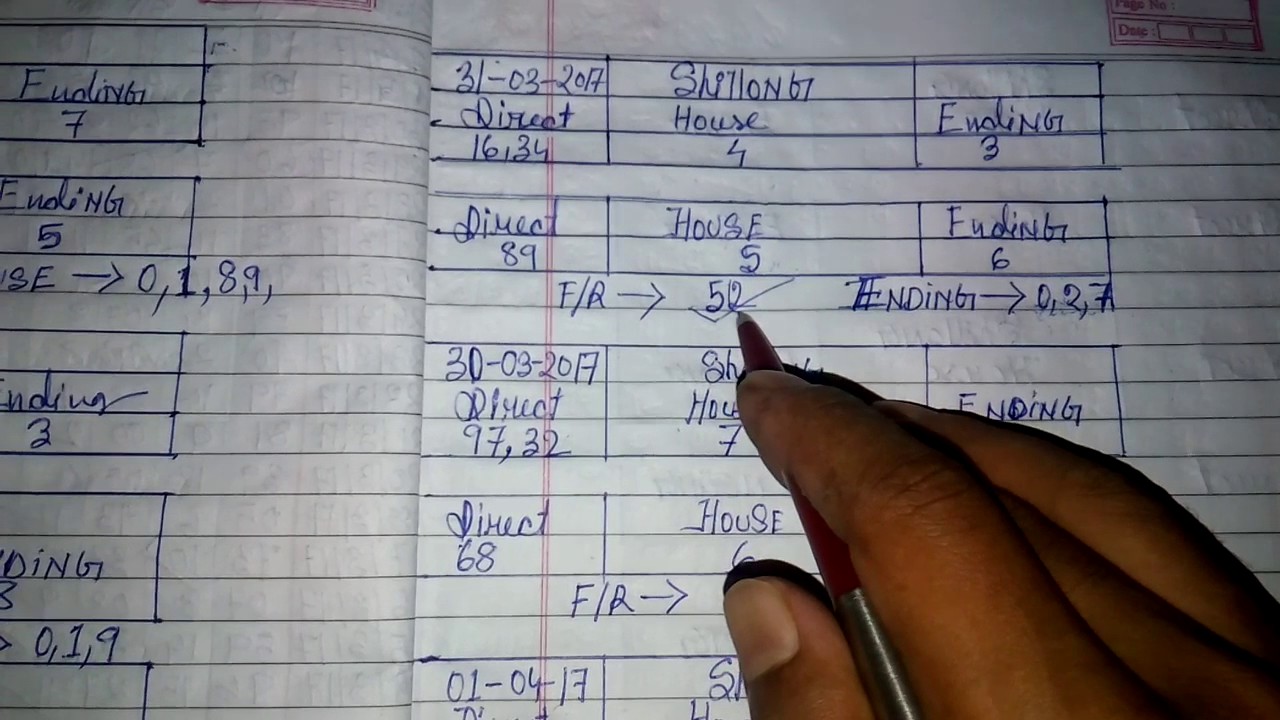 Ending
7
Ending
5
USE → 0,1,8,9,
Ending
3
DING
3
> 0,1,9
Page No :
Date :
31-03-2017 Shillong
Direct House Ending
16,34 4 3
Direct House Ending
89 5 6
F/R → 52 Ending → 0,2,7
30-03-2017
Direct Ending
97,32 7
Direct House
68 6
F/R →
01-04-17